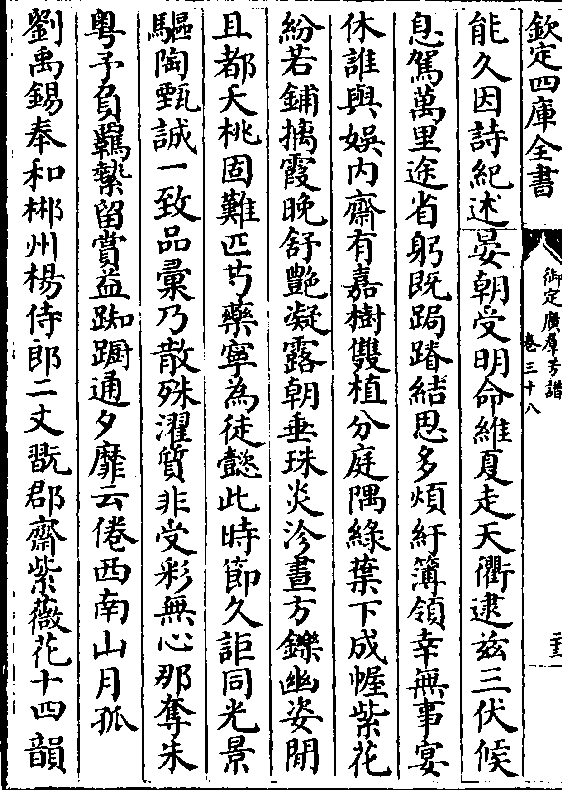 欽定四庫全書
御定廣羣芳譜
卷三十八
三
能久因詩紀述晏朝受明命維夏走天衢逮兹三伏候
息駕萬里途省躬既跼蹐結思多煩紆簿領幸無事宴
休誰與娛内齋有嘉樹雙植分庭隅緑葉下成幄紫花
紛若鋪摛霞晚舒艷凝露朝垂珠炎沴晝方鑠幽姿閒
且都夭桃固難匹芍藥寧為徒懿此時節久詎同光景
驅陶甄誠一致品彚乃散殊濯質非受彩無心那奪朱
粤予負羈縶留賞益踟蹰通夕靡云倦西南山月孤
劉禹錫奉和郴州楊侍郎二丈翫郡齋紫薇花十四韻